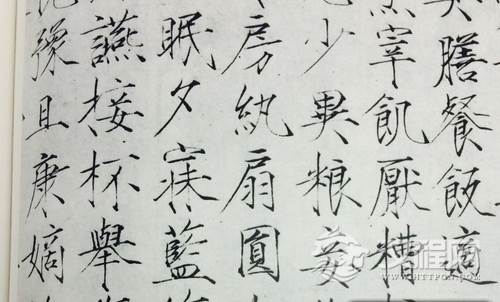 具膳餐飯適
烹宰飢厭糟
少異粮妾
房紈扇圓
眠夕寐藍
讌接杯舉
豫且康嫡
汉程网
HTTPCN.COM